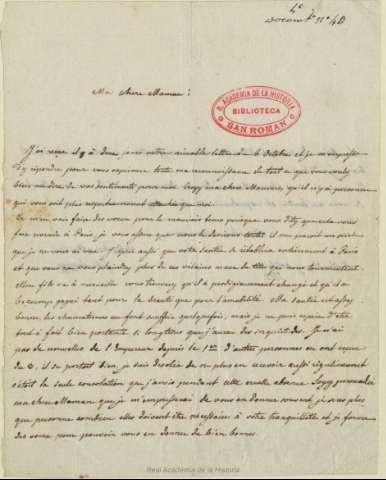 4º
Docum.to nº 40
Ma chere Maman:
R. ACADEMIA DE LA HISTORIA
BIBLIOTECA
SAN ROMAN
J'ai reçu il y a deux jours votre aimable lettre du 6 Octobre et je m'empresse
d'y répondre pour vous exprimer toute ma reconnaissance de tout ce que vous voulez
bien me dire de vos sentiments pour moi. Soyez ma chere Maman, qu'il n'y a personne
qui vous soit plus respectueusement attachée que moi
Je m'en vais faire des voeux pour le mauvais tems puisque vous dites que cela vous
fera revenir à Paris, je vous assure que nous le desirons tous
que je ne vous ai vue. J'espère aussi que votre santée se rétablira entierement à Paris
et que vous ne vous plaindrez plus de ces vilains maux de tête qui vous tourmentent.
Mon fils va à merveille vous trouverez qu'il a prodigieusement changé et qu'il a
beaucoup gagné tant pour la beauté que pour l'amabilité. Ma santée est assez
bonne, les étouffements me font souffrir quelquefois, mais je ne puis espérer d'etre
tout à fait bien portante si longtems que j'aurai des inquiétudes. Je n'ai
pas de nouvelles de l'Empereur depuis le 1er d'autres personnes en ont reçu
du 2, il se portait bien, je suis desolée de ne plus en recevoir aussi régulierement
c'était la seule consolation que j'avois pendant cette cruelle absence. Soyez persuadée
ma chere Maman que je m'empresserai de vous en donner souvent, je sens plus
que personne combien elles doivent être nécessaires à votre tranquillité et je forme
des voeux pour pouvoir vous en donner de bien bonnes.
Real Academia de la Historia